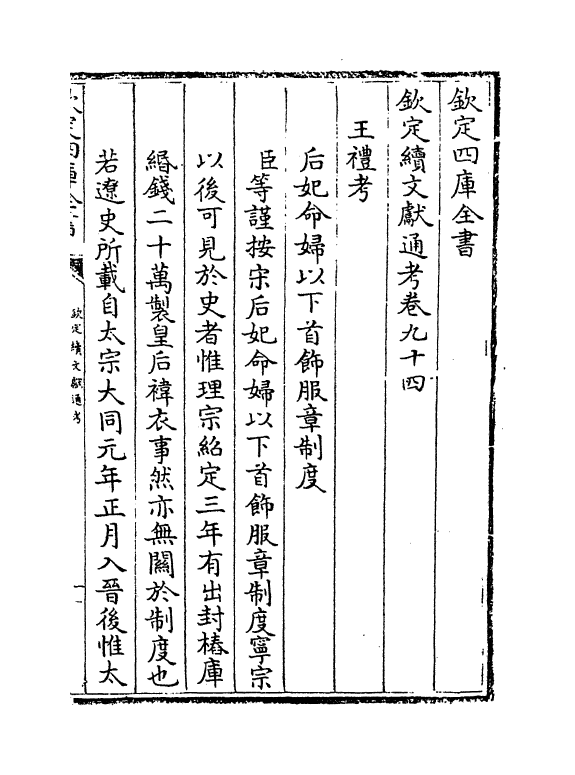 欽定四庫全書
欽定續文獻通考卷九十四
王禮考
后妃命婦以下首飾服章制度
臣等謹按宋后妃命婦以下首飾服章制度寧宗
以後可見於史者惟理宗紹定三年有出封樁庫
緡錢二十萬製皇后褘衣事然亦無關於制度也
若遼史所載自太宗大同元年正月入晉後惟太
欽定四庫全書
欽定續文獻通考
一